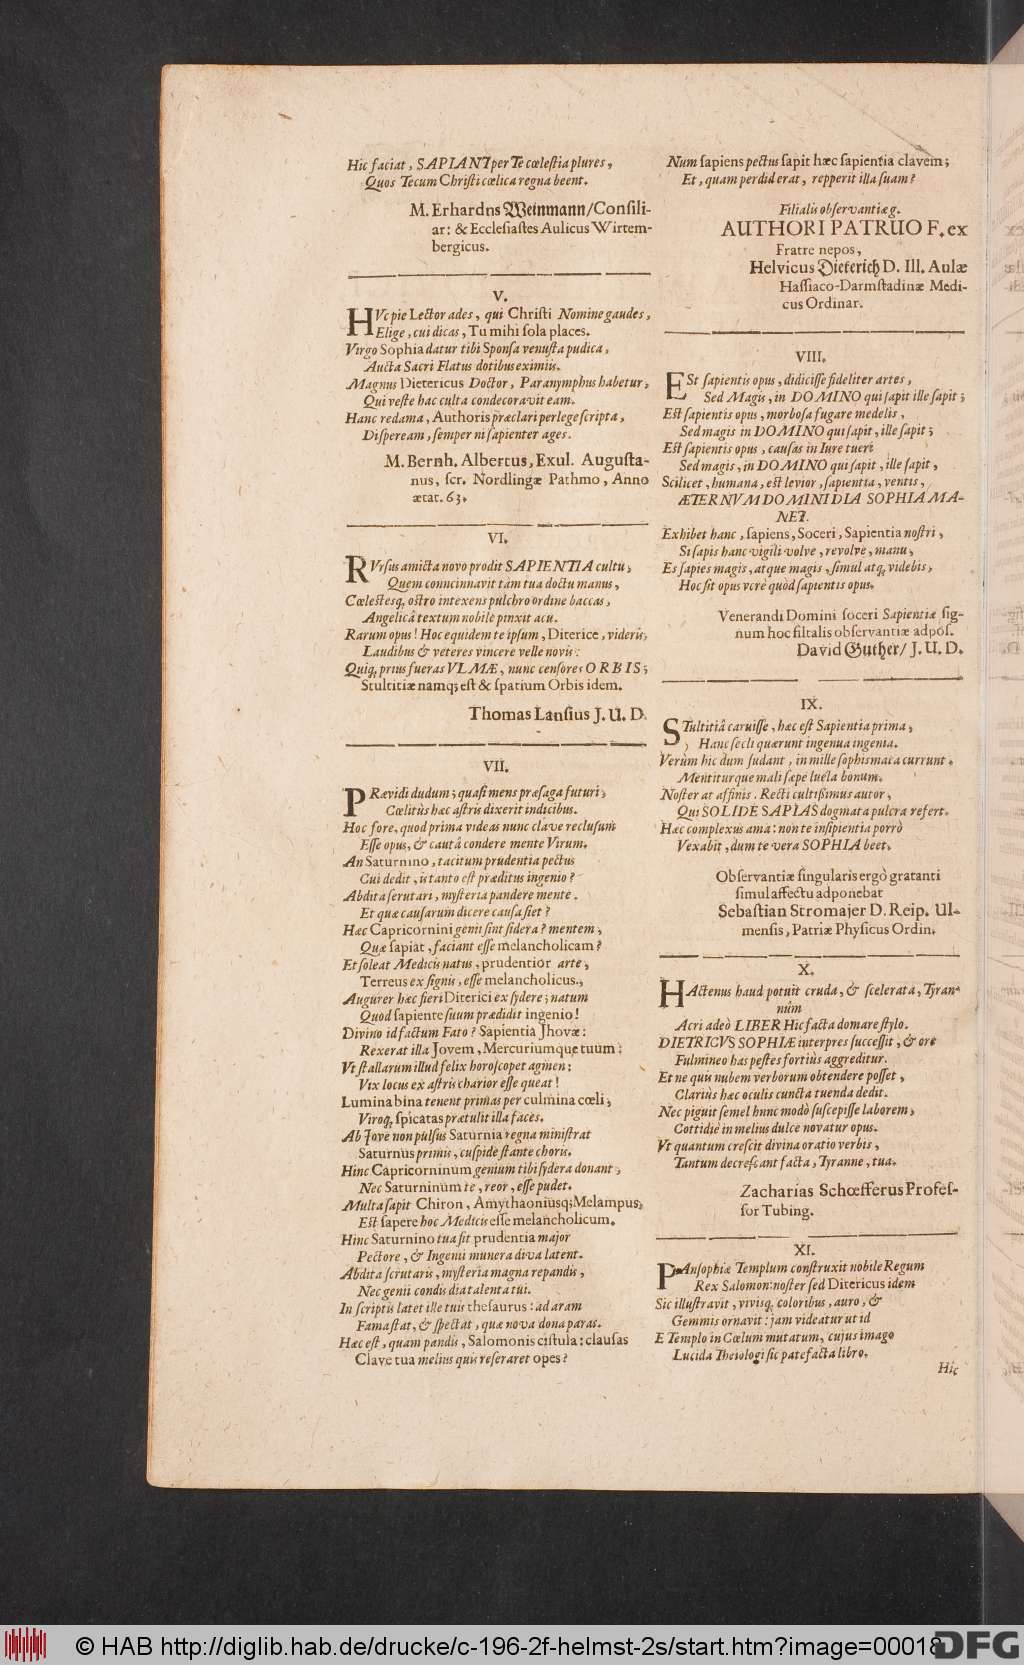 Hic faciat, SAPIANT per Te cœlestia plures,
Quos Tecum Christi cœlica regna beent.
M. Erhardns Weinmann/Consili-
ar: & Ecclesiastes Aulicus Wirtem-
bergicus.
V.
HVc pie Lector ades, qui Christi Nomine gaudes,
Elige, cui dicas, Tu mihi sola places.
Virgo Sophia datur tibi Sponsa venusta pudica,
Aucta Sacri Flatus dotibus eximiis.
Magnus Dietericus Doctor, Paranymphus habetur,
Qui veste hac culta condecoravit eam.
Hanc redama, Authoris præclari perlege scripta,
Dispeream, semper ni sapienter ages.
M. Bernh. Albertus, Exul. Augusta-
nus, scr. Nordlingæ Pathmo, Anno
ætat. 63.
VI.
RVrsus amicta novo prodit SAPIENTIA cultu,
Quem conncinnavit tàm tua docta manus,
Cœlestesq; ostro intexens pulchro ordine baccas,
Angelicâ textum nobile pinxit acu.
Rarum opus! Hoc equidem te ipsum, Diterice, videris,
Laudibus & veteres vincere velle novis:
Quiq; prius fueras VLMÆ, nunc censores ORBIS;
Stultitiæ namq; est & spatium Orbis idem.
Thomas Lansius J. U. D.
VII.
PRævidi dudum; quasi mens præsaga futuri,
Cœlitùs hæc astris dixerit indicibus.
Hoc fore, quod prima videas nunc clave reclusum
Esse opus, & cautâ condere mente Virum.
An Saturnino, tacitum prudentia pectus
Cui dedit, is tanto est præditus ingenio?
Abdita scrutari, mysteria pandere mente.
Et quæ causarum dicere causa siet?
Hæc Capricornini genii sint sidera? mentem,
Quæ sapiat, faciant esse melancholicam?
Et soleat Medicis natus, prudentior arte,
Terreus ex signis, esse melancholicus.,
Augurer hæc fieri Diterici ex sydere; natum
Quod sapiente suum prædidit ingenio!
Divino id factum Fato? Sapientia Jhovæ:
Rexerat illa Jovem, Mercuriumque tuum:
Vt stallarum illud felix horoscopet agmen;
Vix locus ex astris charior esse queat!
Lumina bina tenent primas per culmina cœli,
Viroq; spicatas prætulit illa faces.
Ab Jove non pulsus Saturnia regna ministrat
Saturnus primis, cuspide stante choris.
Hinc Capricorninum genium tibi sydera donant,
Nec Saturninum te, reor, esse pudet.
Multa sapit Chiron, Amythaoniusq; Melampus,
Est sapere hoc Medicis esse melancholicum.
Hinc Saturnino tua sit prudentia major
Pectore, & Ingenii munera diva latent.
Abdita scrutaris, mysteria magna repandis,
Nec genii condis dia talenta tui.
In scriptis latet ille tuis thesaurus: ad aram
Fama stat, & spectat, quæ nova dona paras.
Hæc est, quam pandis, Salomonis cistula: clausas
Clave tua melius quis reseraret opes?
Num sapiens pectus sapit hæc sapientia clavem;
Et, quam perdiderat, repperit illa suam?
Filialis observantiæ g.
AUTHORI PATRUO F. ex
Fratre nepos,
Helvicus Dieterich D. Ill. Aulæ
Hassiaco-Darmstadinæ Medi-
cus Ordinar.
VIII.
ESt sapientis opus, didicisse fideliter artes,
Sed Magis, in DOMINO qui sapit ille sapit;
Est sapientis opus, morbosa fugare medelis,
Sed magis in DOMINO qui sapit, ille sapit;
Est sapientis opus, causas in Iure tueri
Sed magis, in DOMINO qui sapit, ille sapit,
Scilicet, humana, est levior, sapientia, ventis,
ÆTERNVM DOMINI DIA SOPHIA MA-
NET.
Exhibet hanc, sapiens, Soceri, Sapientia nostri,
Si sapis hanc vigili volve, revolve, manu,
Es sapies magis, atque magis, simul atq; videbis,
Hoc sit opus verè quòd sapientis opus.
Venerandi Domini soceri Sapientiæ sig-
num hoc filialis observantiæ adpos.
David Guther/ J. U. D.
IX.
STultitiâ caruisse, hæc est Sapientia prima,
Hanc secli quærunt ingenua ingenia.
Verùm hic dum sudant, in mille sophismata currunt.
Mentiturque mali sæpe luela bonum.
Noster at affinis. Recti cultissimus autor,
Qui SOLIDE SAPIAS dogmata pulcra refert.
Hæc complexus ama: non te insipientia porrò
Vexabit, dum te vera SOPHIA beet.
Observantiæ singularis ergò gratanti
simul affectu adponebat
Sebastian Stromajer D. Reip. Ul-
mensis, Patriæ Physicus Ordin.
X.
HActenus haud potuit cruda, & scelerata, Tyran-
nûm
Acri adeò LIBER Hic facta domare stylo.
DIETRICVS SOPHIÆ interpres successit, & ore
Fulmineo has pestes fortiùs aggreditur.
Et ne quis nubem verborum obtendere posset,
Clariùs hæc oculis cuncta tuenda dedit.
Nec piguit semel hunc modò suscepisse laborem,
Cottidiè in melius dulce novatur opus.
Vt quantum crescit divina oratio verbis,
Tantum decrescant facta, Tyranne, tua.
Zacharias Schœfferus Profes-
sor Tubing.
XI.
PAnsophiæ Templum construxit nobile Regum
Rex Salomon: noster sed Ditericus idem
Sic illustravit, vivisq; coloribus, auro, &
Gemmis ornavit: jam videatur ut id
E Templo in Cœlum mutatum, cujus imago
Lucida Theiologi sic patefacta libro.
Hic
© HAB http://diglib.hab.de/drucke/c-196-2f-helmst-2s/start.htm?image=00018
DFG